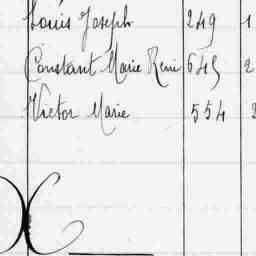 Louis Joseph 249 1
Constant Marie René 645 2
Victor Marie 554 2